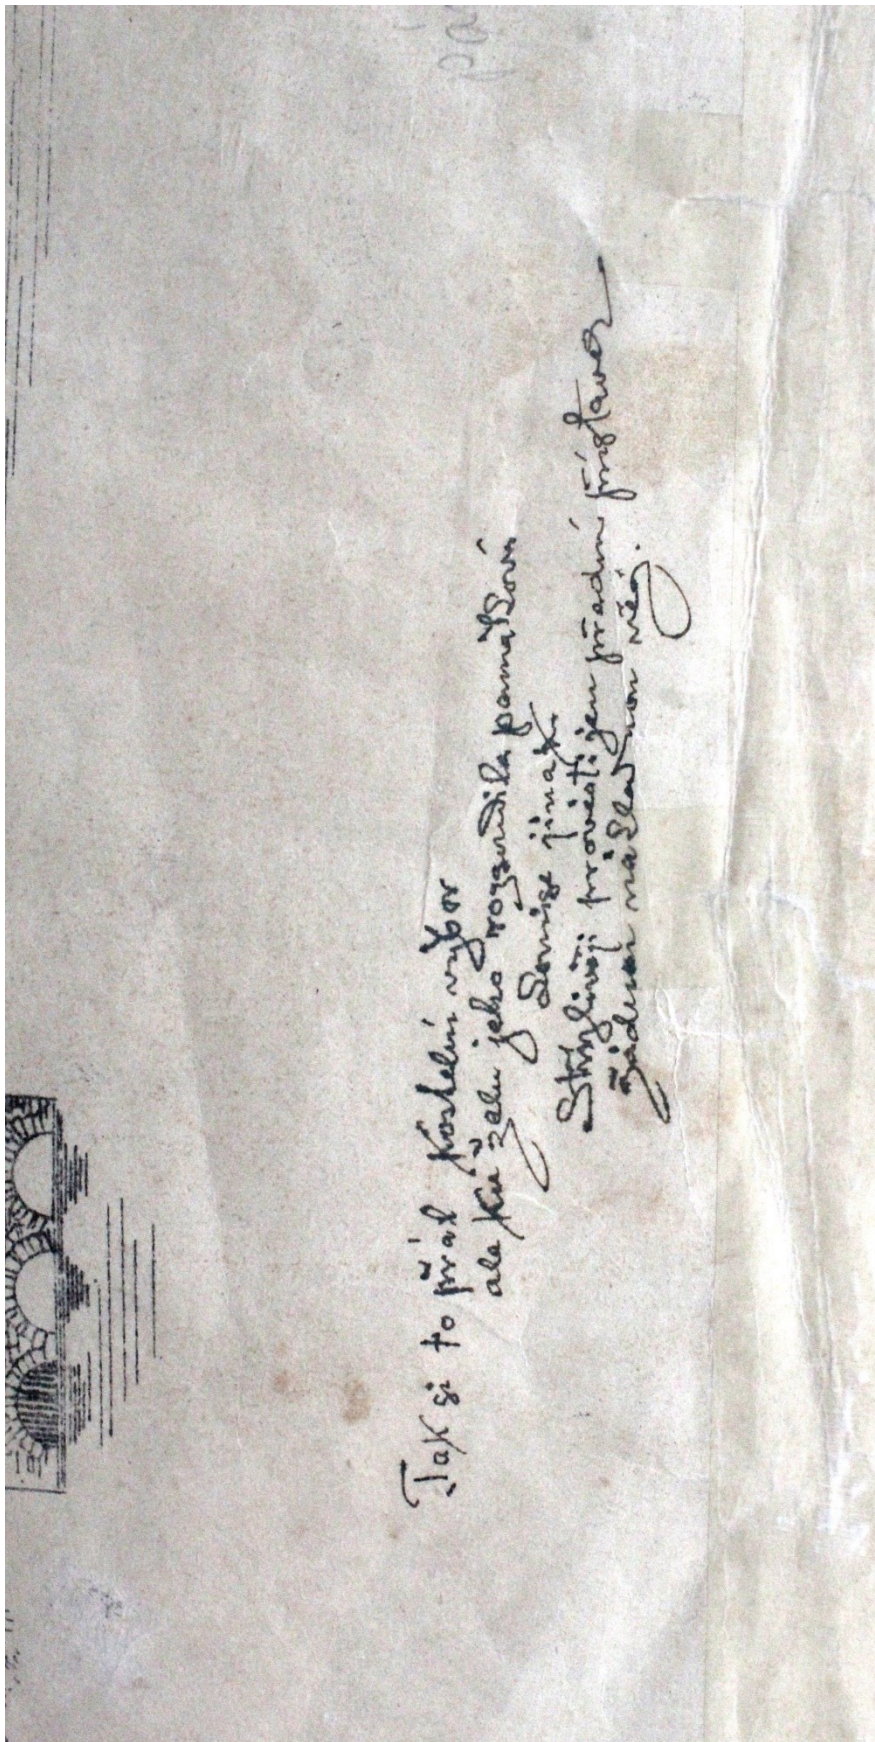 Tak si to přál kostelní výbor
ale ku žalu jeho rozhodla památková
komise jinak.
provésti jen přední přístavek
žádnou věž.